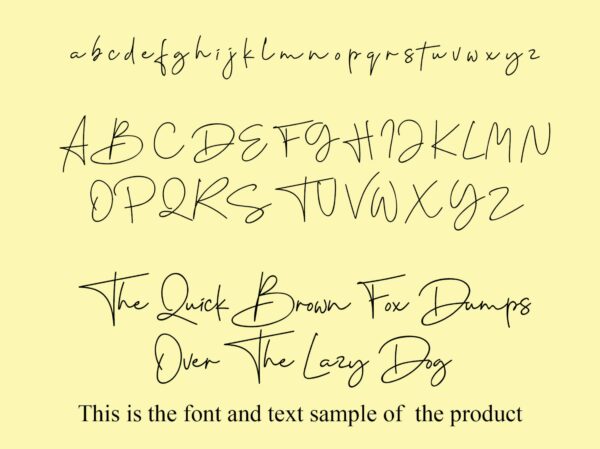 a b c d e f g h i j k l m n o p q r s t u v w x y z
A B C D E F G H I J K L M N
O P Q R S T U V W X Y Z
The Quick Brown Fox Dumps
Over The Lazy Dog
This is the font and text sample of the product